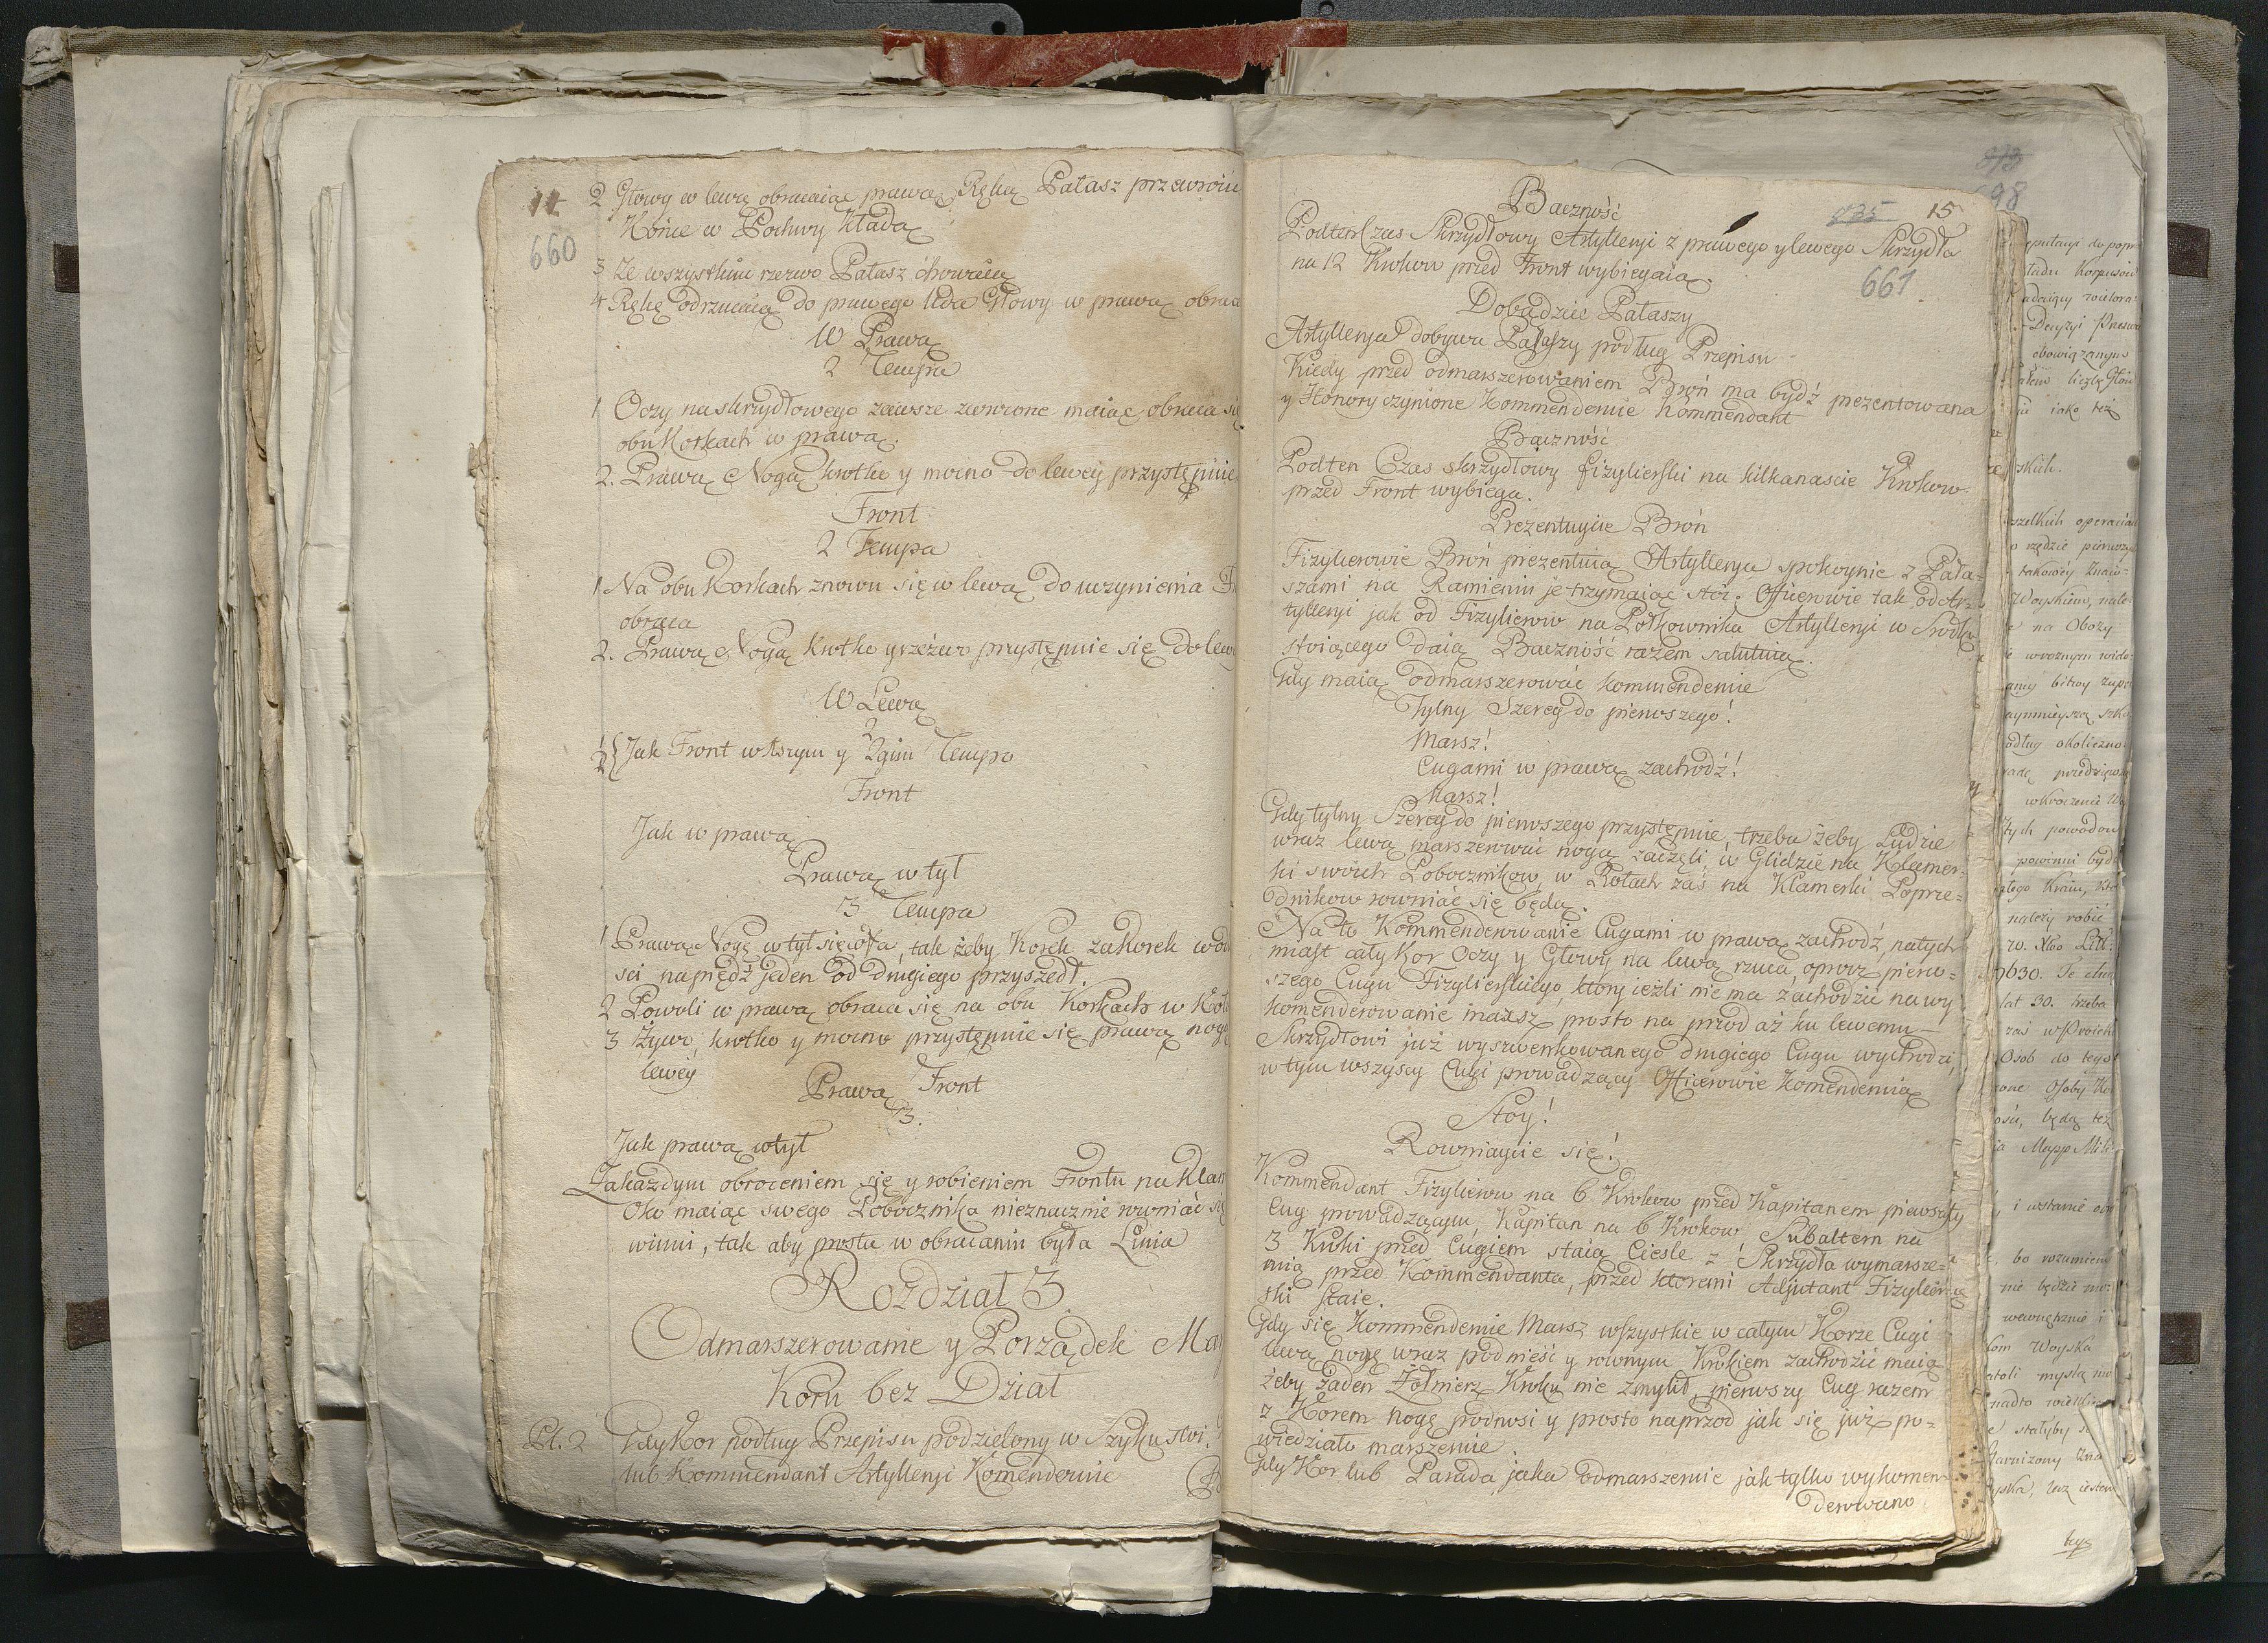 14
660
2 Głowy w lewą obracaiąc prawą Ręką Pałasz przewróci
Końce w Pochwy kłada
3 Ze wszystkim rzezwo Pałasz chowaią
4 Rękę odrzucaią do prawego Uda Głowy w prawą obraca
W Prawą
2 Tempa
1 Oczy na skrzydłowego zawsze zwrócone maiąc obraca się
obu Korkach w prawą.
2. Prawą Nogą krótko y mocno do lewey przystępuie
Front
2 Tempa
1 Na obu Korkach znowu się w lewą do uczynienia Fr
obraca
2. Prawą Nogą Krótko y rzeźwo przystępuie się do lew
W Lewą
2
1 2 { Jak Front w 1szym y 2gim Tempo
Front
Jak w prawą
Prawą w tył
3 Tempa
1 Prawą Nogę w tył się cofa, tak żeby Korek za Korek wod
ści napiędź jeden od drugiego przyszedł.
2 Powoli w prawą obraca się na obu Korkach w Koł
3 Żywo, krótko y mocno przystępuie się prawą nogą
lewey
Prawą Front
3.
Jak prawą w tył
Za każdym obroceniem się y robieniem Frontu na Klam
Oko maiąc swego Pobocznika nieznacznie rowniać się
winni, tak aby prosta w obracaniu była Linia
Rozdział 3
Odmarszerowanie y Porządek Mar
Koru bez Dział
Pt. 2 Gdy Kor podług Przepisu podzielony w Szyku stoi.
lub Kommendant Artylleryi Komenderuie
Baczność
835 15
Podten Czas Skrzydłowy Artylleryi z prawego y lewego Skrzydła
na 12 Kroków przed Front wybiegaią
661
Dobądzcie Pałaszy
Artyllerya dobywa Pałaszy podług Przepisu
Kiedy przed odmarszerowaniem Broń ma bydź prezentowana
y Honory czynione Kommenderuie Kommendant
Baczność
Podten Czas skrzydłowy fizylierski na kilkanascie Krokow
przed Front wybiega.
Prezentuycie Broń
Fizylierowie Broń prezentuią Artyllerya spokoynie z Pała-
szami na Ramieniu je trzymaiąc stoi. Officerowie tak od Ar-
tylleryi jak od Fizylierow na Półkownika Artylleryi w Srodku
stoiącego daią Baczność razem salutuią.
Gdy maią odmarszerować kommenderuie
Tylny Szereg do pierwszego!
Marsz!
Cugami w prawą zachodź!
Marsz!
Gdy tylny Szereg do pierwszego przystępuie, trzeba żeby Ludzie
wraz lewą marszerować nogą zaczęli, w Glidzie na Klamer-
ki swoich Poboczników, w Rotach zaś na Klamerki Poprze-
dników rowniać się będą.
Na to Kommenderowanie Cugami w prawą zachodź, natych
miast cały Kor Oczy y Głowy na lewą rzuca, oprocz pierw-
szego Cugu Fizylierskiego, ktory ieżli nie ma zachodzić na wy
komenderowanie marsz prosto na przod aż ku lewemu
Skrzydłowi już wyszwenkowanego drugiego Cugu wychodzi,
w tym wszyscy Cugi prowadzący Officerowie komenderuią
Stoy!
Rowniaycie się!
Kommendant Fizylierow na 6 Krokow przed Kapitanem pierwszy
Cug prowadzącym, Kapitan na 6 Krokow Subaltern na
3 Kroki przed Cugiem staią Cieśle z Skrzydła wymarsze-
ruią przed Kommendanta, przed ktoremi Adjutant Fizylier-
ski staie.
Gdy się Kommenderuie Marsz wszystkie w całym Korze Cugi
lewą nogę wraz podnieść y rownym Krokiem zachodzić maią
żeby żaden Żołnierz Kroku nie zmylił, pierwszy Cug razem
z Korem nogę podnosi y prosto naprzod jak się już po-
wiedziało marszeruie.
Gdy Kor lub Parada jaka odmarszeruie jak tylko wykomen
derowano
698